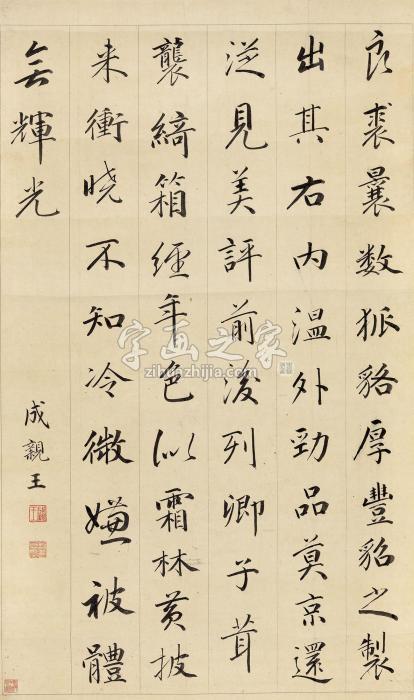 良裘曩数狐貉厚豐貂之製
出其右内温外勁品莫京還
從見美評前後列卿子茸
襲綺箱經年色似霜林黄披
来衝曉不知冷微嫌被體
無輝光
成親王
字画之家
zihuazhijia.com